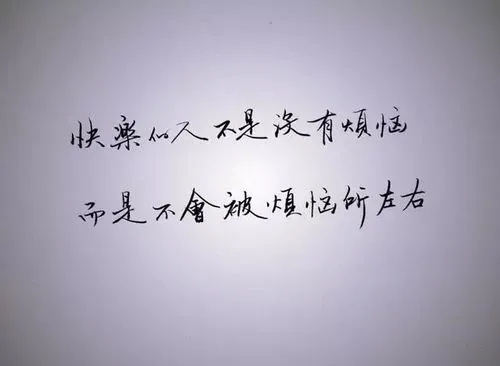 快樂的人不是没有煩惱
而是不會被煩惱所左右